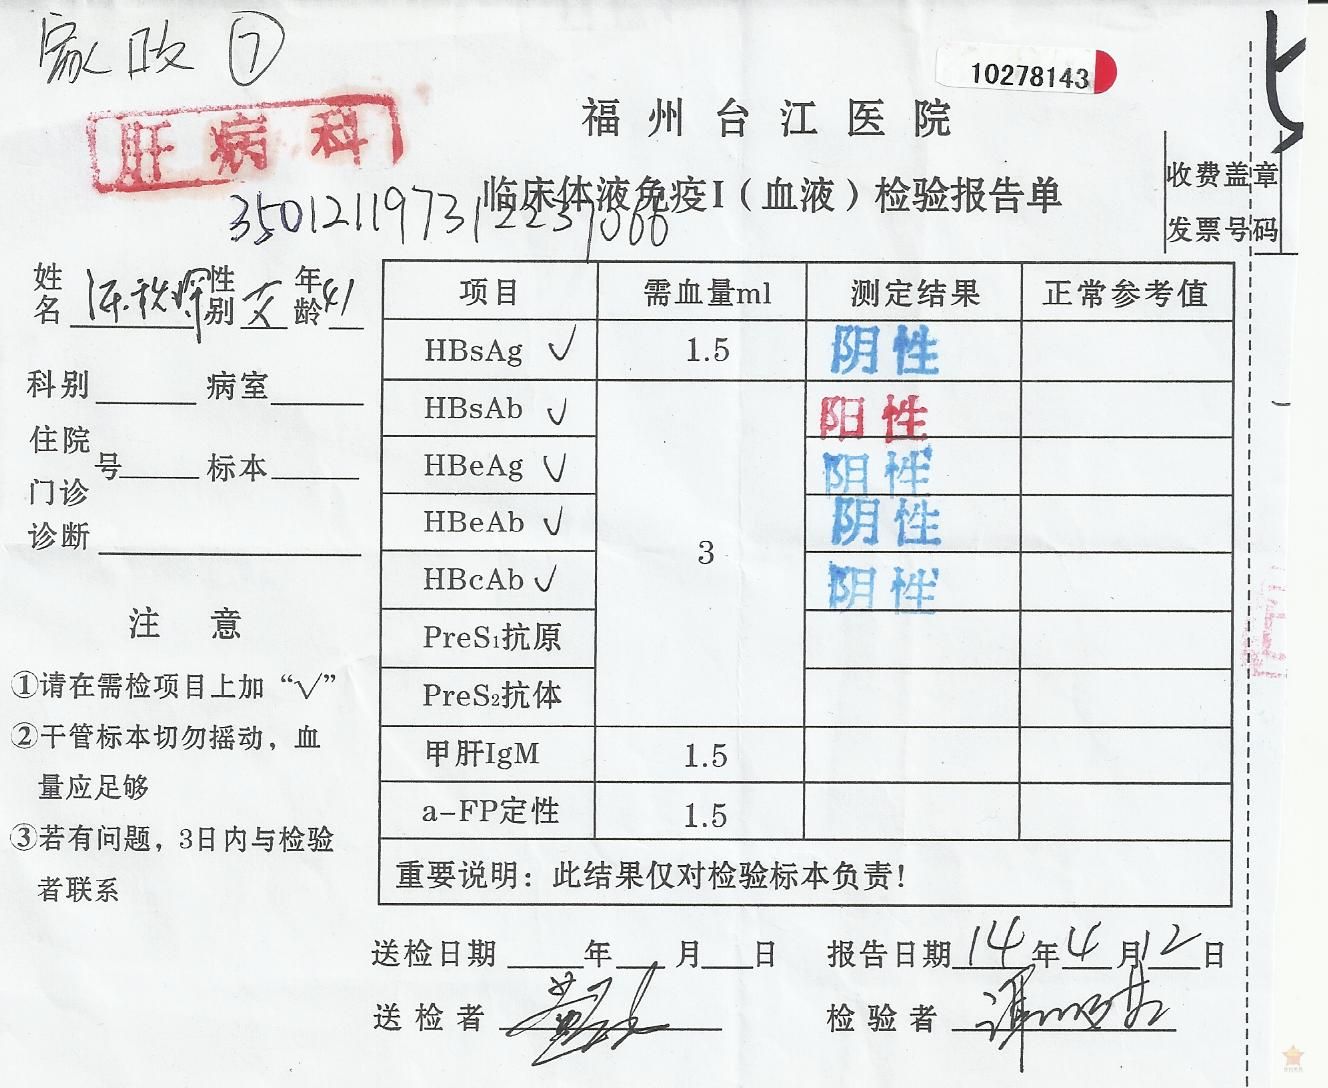 家政⑦
10278143
福州台江医院
肝病科
临床体液免疫I（血液）检验报告单
收费盖章
发票号码
姓名 性别 女 年龄 41
科别 病室
住院
门诊 号 标本
诊断
注 意
①请在需检项目上加“√”
②干管标本切勿摇动，血
量应足够
③若有问题，3日内与检验
者联系
项目 需血量ml 测定结果 正常参考值
HBsAg √ 1.5 阴性
HBsAb √ 3 阳性
HBeAg √ 阴性
HBeAb √ 阴性
HBcAb √ 阴性
PreS₁抗原
PreS₂抗体
甲肝IgM 1.5
a-FP定性 1.5
重要说明：此结果仅对检验标本负责！
送检日期 年 月 日 报告日期 14 年 4 月 12 日
送检者 检验者